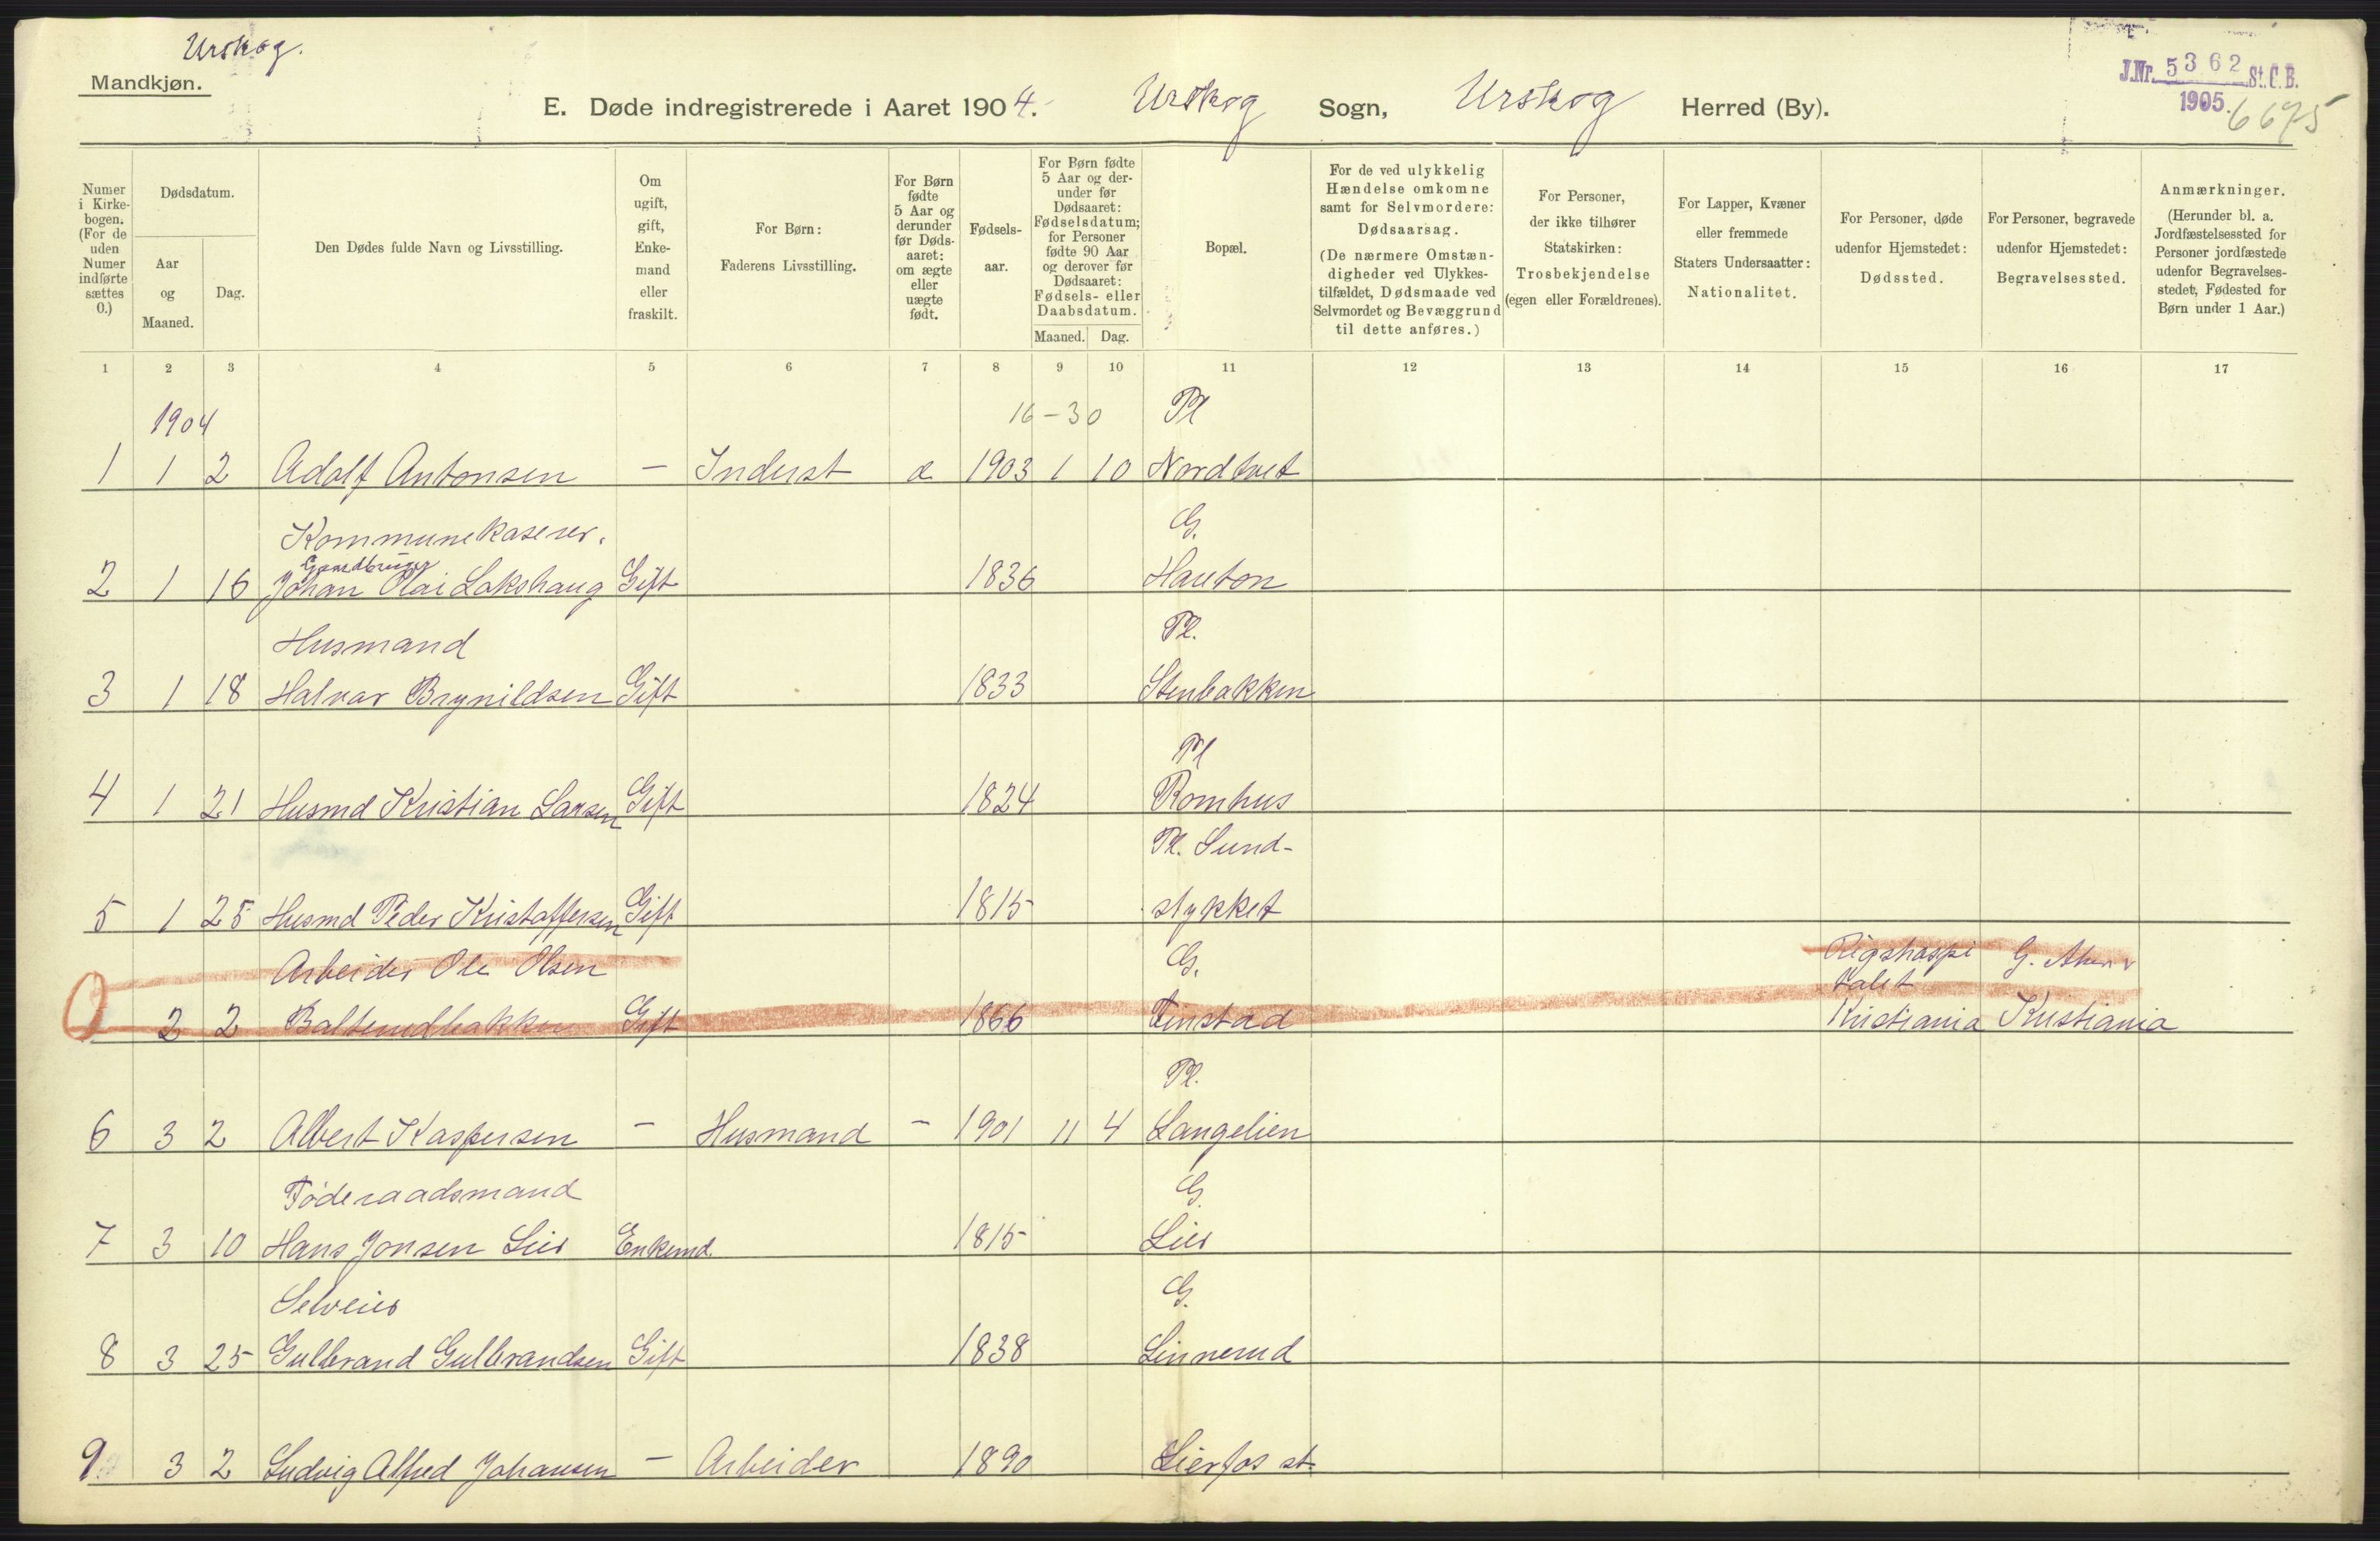 Urskog.
Mandkjøn.
E. Døde indregistrerede i Aaret 1904. Urskog Sogn, Urskog Herred (By).
J.Nr. 5362 St.C.B.
1905. 6675
Numer i Kirkebogen. (For de uden Numer indførte sættes 0.)
Dødsdatum.
Aar og Maaned.
Dag.
Den Dødes fulde Navn og Livsstilling.
Om ugift, gift, Enkemand eller fraskilt.
For Børn:
Faderens Livsstilling.
For Børn fødte 5 Aar og derunder før Dødsaaret: om ægte eller uægte født.
Fødselsaar.
For Børn fødte 5 Aar og derunder før Dødsaaret: Fødselsdatum; for Personer fødte 90 Aar og derover før Dødsaaret: Fødsels- eller Daabsdatum.
Maaned. Dag.
Bopæl.
For de ved ulykkelig Hændelse omkomne samt for Selvmordere: Dødsaarsag.
(De nærmere Omstændigheder ved Ulykkestilfældet, Dødsmaade ved Selvmordet og Bevæggrund til dette anføres.)
For Personer, der ikke tilhører Statskirken: Trosbekjendelse (egen eller Forældrenes).
For Lapper, Kvæner eller fremmede Staters Undersaatter: Nationalitet.
For Personer, døde udenfor Hjemstedet: Dødssted.
For Personer, begravede udenfor Hjemstedet: Begravelsessted.
Anmærkninger.
(Herunder bl. a. Jordfæstelsessted for Personer jordfæstede udenfor Begravelsesstedet, Fødested for Børn under 1 Aar.)
1 2 3 4 5 6 7 8 9 10 11 12 13 14 15 16 17
1904 16-30 Pl
1 1 2 Adolf Antonsen - Inderst 1903 1 10 Nordtvet
Kommunekaserer. G.
Gaardbruger
2 1 16 Johan Olai Lakshaug Gift 1836 Hauton
Husmand Pl.
3 1 18 Halvar Brynildsen Gift 1833 Stenbakken
Pl
4 1 21 Husmd Kristian Larsen Gift 1824 Romhus
Pl. Sund-
5 1 25 Husmd Peder Kristoffersen Gift 1815 stykket
Arbeider Ole Olsen G. Rigshospi G. Aker
talet
0 2 2 Balterudbakken Gift 1866 Kristiania Kristiania
Pl.
6 3 2 Albert Kaspersen - Husmand - 1901 11 4 Langelien
Føderaadsmand G.
7 3 10 Hans Jonsen Lier Enkemd 1815 Lier
Selveier G.
8 3 25 Gulbrand Gulbrandsen Gift 1838 Linnerud
9 3 2 Ludvig Alfred Johansen - Arbeider 1890 Lierfos st.